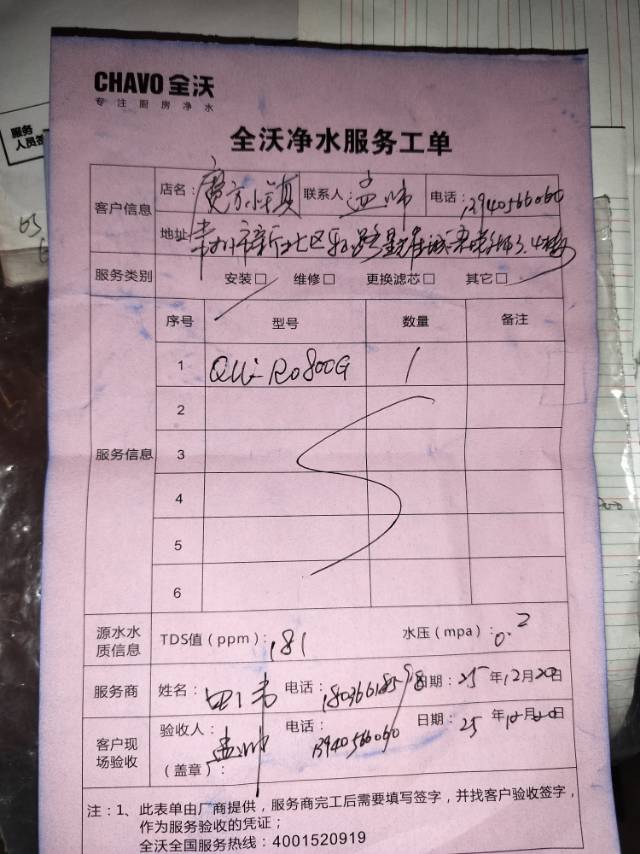 CHAVO 全沃
专注厨房净水
服务
人员签
全沃净水服务工单
客户信息
店名： 小镇 联系人 孟帅 电话：13940566060
地址
服务类别 安装□ 维修□ 更换滤芯□ 其它□
服务信息
序号 型号 数量 备注
1 Ro800G 1
2
3
4
5
6
源水水质信息 TDS值（ppm）：181 水压（mpa）：0.2
服务商 姓名： 电话： 日期：25 年12月20日
客户现场验收 验收人：孟帅 电话：13940566060 日期：25 年12月20日
（盖章）：
注：1、此表单由厂商提供，服务商完工后需要填写签字，并找客户验收签字，
作为服务验收的凭证；
全沃全国服务热线：4001520919